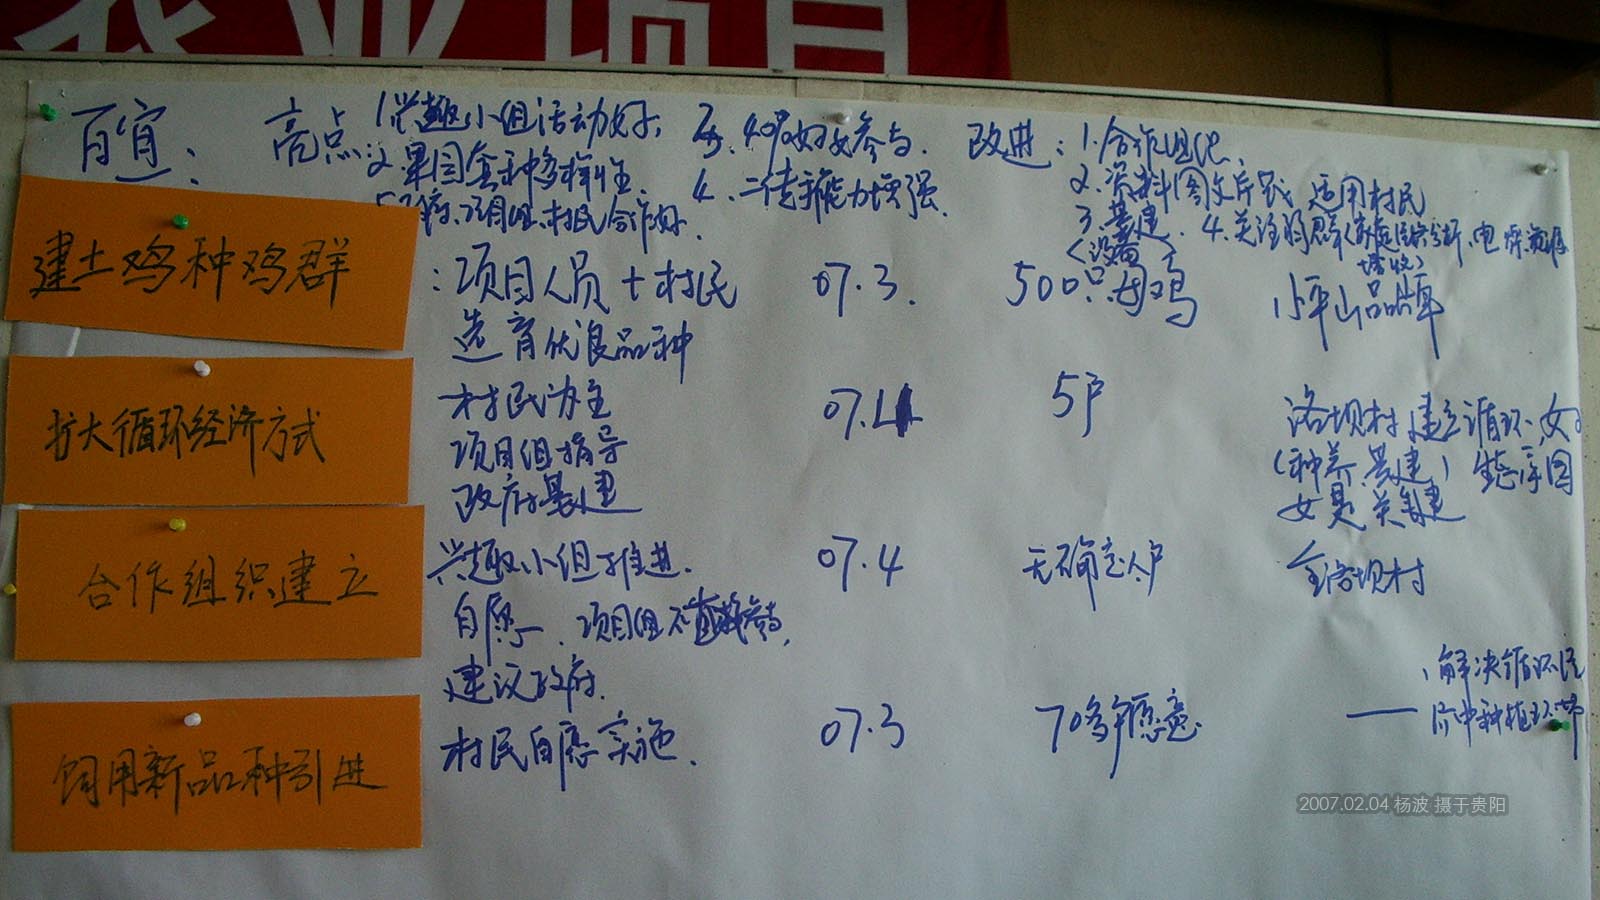 农业项目
百宜： 亮点：1.兴趣小组活动好， 3. 40%妇女参与. 改进：1.合作组织，
2.果园套种多样性. 4.二传手能力增强. 2.资料图文片残 适用村民
项目组、村民合作好. 3.基建. 4.关注弱群
（设备）
建土鸡种鸡群 ：项目人员+村民 07.3. 500只母鸡 小坪山品牌
选育优良品种
扩大循环经济方式 村民为主 07.4 5户 洛坝村建立循环
项目组指导 （种养、基建）
政府基建 女是关键
合作组织建立 兴趣小组推进. 07.4 无确定人户 全洛坝村
自愿、项目组不参与，
建议政府.
饲用新品种引进 村民自愿实施. 07.3 70多户愿意. —— 、解决循环经
济中种植环节
2007.02.04 杨波 摄于贵阳